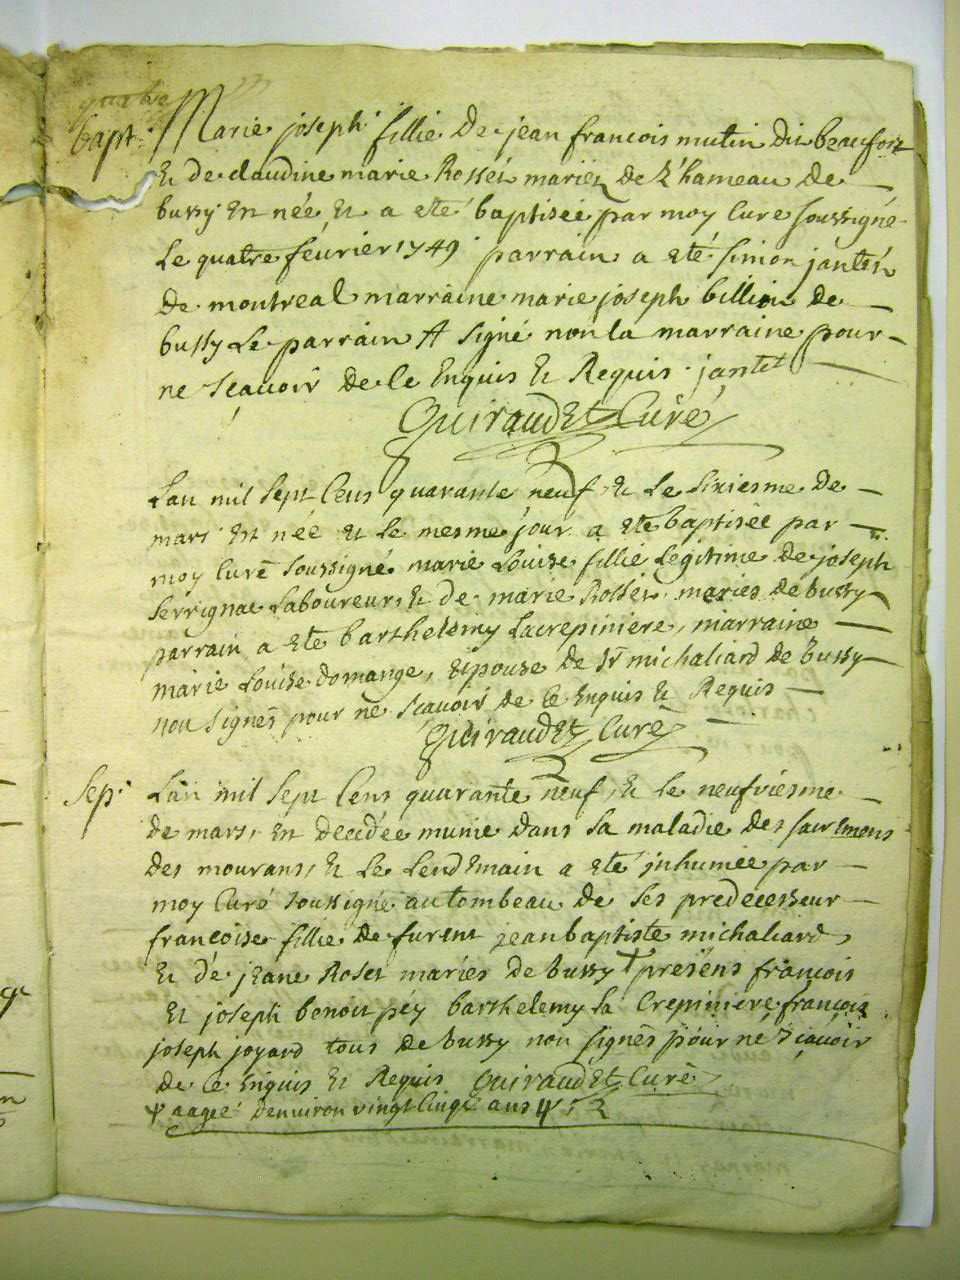 bapt. Marie joseph fillie De jean francois mutin dit beaufort
Et de claudine marie Rosset mariez De L'hameau de
bussy Est née Et a eté baptisée par moy Cure soussigné
Le quatre février 1749 parrain a eté simon jantet
de montreal marraine marie joseph billion de
bussy Le parrain A signé non la marraine pour
ne scauoir de Ce Enquis Et Requis jantet
Guiraudet Curé
Lan mil sept Cens quarante neuf Et Le sixiesme de
mars Est née Et Le mesme jour a eté baptisée par
moy Curé soussigné marie Louise fillie Legitime de joseph
Serrignac Laboureur, Et de marie Rosset mariés de bussy
parrain a eté barthelemy Lacrepiniere, marraine
marie Louise domange, Epouse de Sr michaliard de bussy
non signés pour ne scauoir de Ce Enquis Et Requis
Guiraudet Curé
Sep. Lan mil sept Cens quarante neuf Et Le neufviesme
de mars, Est decedée munie dans sa maladie des sacremens
des mourans, Et Le Lendemain a eté inhumée par
moy Curé soussigné au tombeau de ses predecesseur
francoise fillie de furent jean baptiste michaliard
Et de jeane Roset mariés de bussy presens francois
Et joseph benoit pey barthelemy la Crepiniere francois
joseph joyard tous de bussy non signés pour ne scauoir
de Ce Enquis Et Requis Guiraudet Curé
aageé denuiron vingt Cinq ans